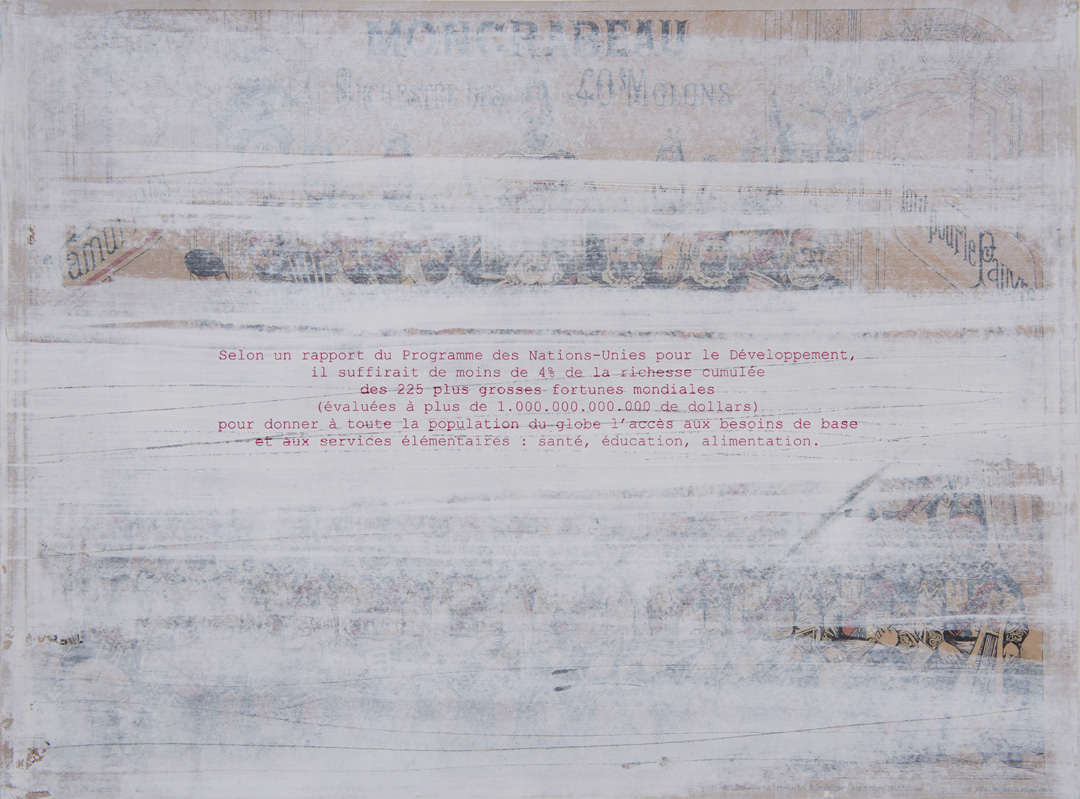 MONGRABEAU
ORCHESTRE DES 40 MOLONS
pour le Pauvre
Selon un rapport du Programme des Nations-Unies pour le Développement,
il suffirait de moins de 4% de la richesse cumulée
des 225 plus grosses fortunes mondiales
(évaluées à plus de 1.000.000.000.000 de dollars)
pour donner à toute la population du globe l'accès aux besoins de base
et aux services élémentaires : santé, éducation, alimentation.